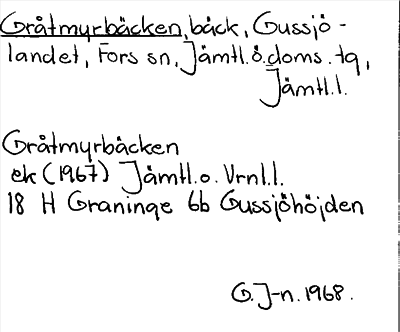 Gråtmyrbäcken, bäck, Gussjö-
landet, Fors sn, Jämtl.ö.doms.tg,
Jämtl.l.
Gråtmyrbäcken
ek (1967) Jämtl.o.Vrnl.l.
18 H Graninge 6b Gussjöhöjden
G.J-n.1968.